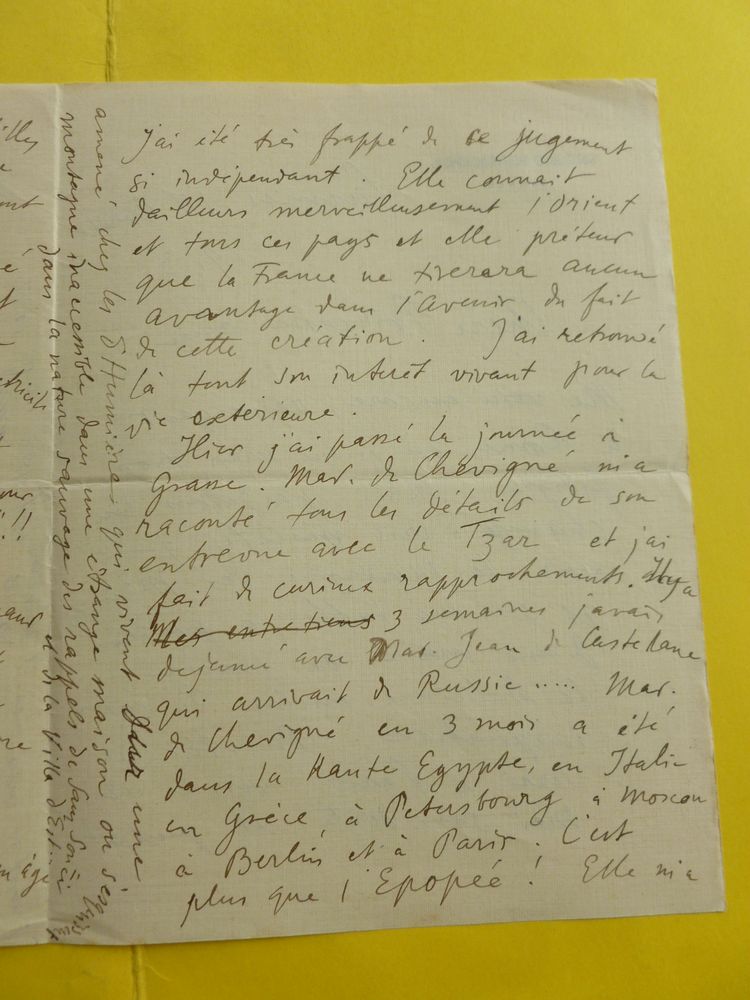 j'ai été très frappé de ce jugement
si indépendant. Elle connait
dailleurs merveilleusement l'orient
et tous ces pays et elle préteur
que la France ne tirerara aucun
avantage dans l'avenir du fait
de cette création. J'ai retrouvé
là tout son interêt vivant pour la
vie exterieure.
Hier j'ai passé la journée à
Grasse. Mad. de Chévigné m'a
raconté tous les détails de son
entrevue avec le Tzar et j'ai
fait de curieux rapprochements. Il y a
Mes entretiens 3 semaines javais
dejeuné avec Mad. Jean de Castelane
qui arrivait de Russie..... Mad.
de Chevigné en 3 mois a été
dans la Haute Egypte, en Italie
en Grèce, à Petersbourg à Moscou
à Berlin et à Paris. C'est
plus que l'Epopée! Elle m'a
amené chez les d'Humières qui vivent dans une
montagne inaccessible dans une étrange maison ou
dans la nature sauvage des rappels de Sans Souci
et de la Villa d'Est